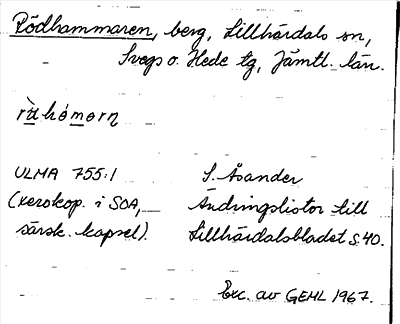 Rödhammaren, berg, Lillhärdals sn,
Svegs o. Hede tg, Jämtl. län.
rö̀ hómorn
ULMA 755:1 S. Åsander
(xerokop. i SOA, Ändringslistor till
särsk. kapsel). Lillhärdalsbladet s. 40.
Exc. av GEHL 1967.